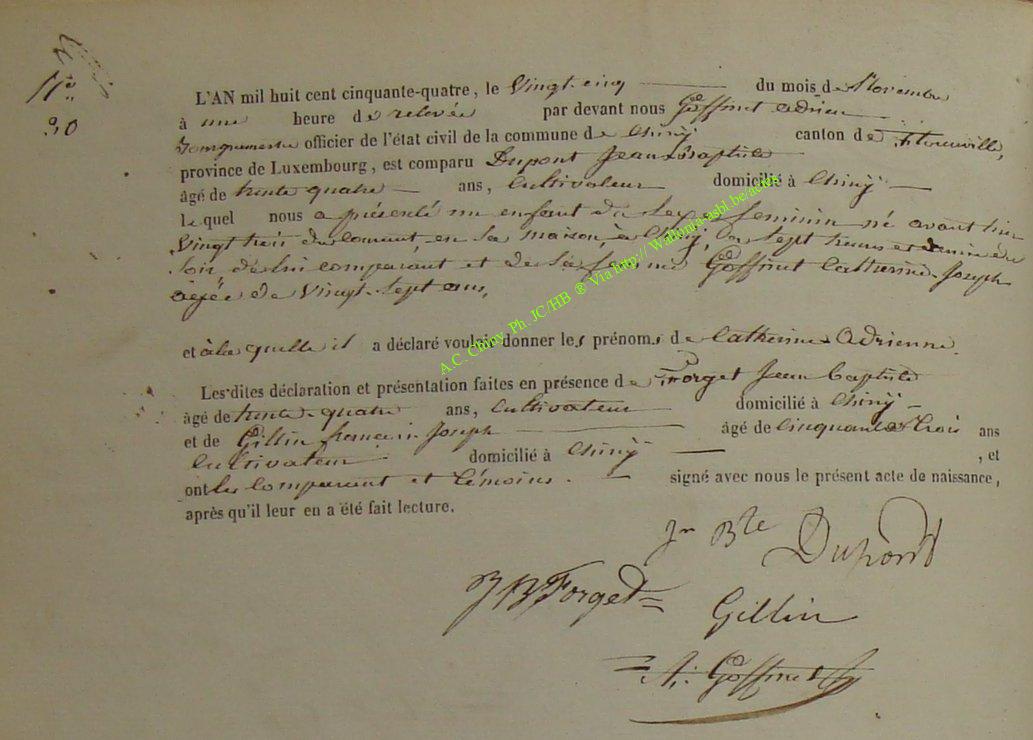 N°
30
L'AN mil huit cent cinquante-quatre, le Vingt-cinq du mois de Novembre
à une heure de relevée par devant nous Goffinet Adrien
Bourguemestre officier de l'état civil de la commune de Chiny canton de Florenville,
province de Luxembourg, est comparu Dupont Jean Baptiste
âgé de trente quatre ans, Cultivateur domicilié à Chiny
lequel nous a présenté un enfant du Sexe feminin né avant hier
Vingt trois du courant en sa maison, à Chiny, à sept heures et demie du
soir de lui comparant et de sa femme Goffinet Catherine-Joseph
agée de Vingt-Sept ans,
et à la quelle il a déclaré vouloir donner les prénoms de Catherine Adrienne.
Les-dites déclaration et présentation faites en présence de Forget Jean baptiste
âgé de trente-quatre ans, Cultivateur domicilié à Chiny
et de Gillin francois Joseph âgé de Cinquante Trois ans
Cultivateur domicilié à Chiny , et
ont les Comparant et témoins. signé avec nous le présent acte de naissance,
après qu'il leur en a été fait lecture.
Jn Bte Dupont
JB Forget
Gillin
A. Goffinet
A.C. Chiny. Ph. JC/HB ® Via http:// Wallonia-asbl.be/actes